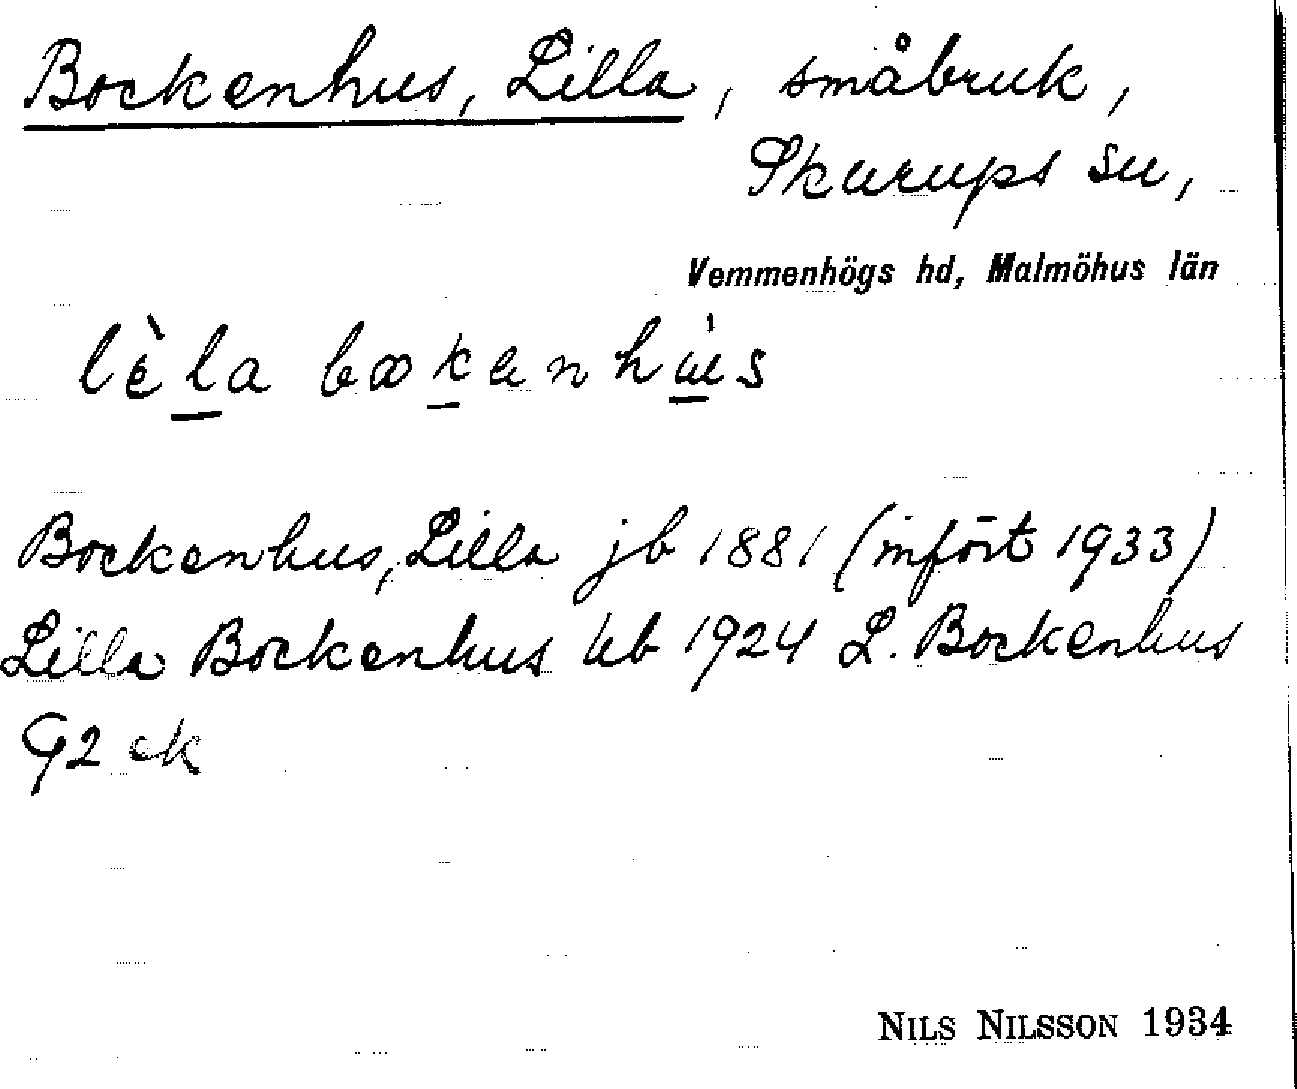 Bockenhus, Lilla, småbruk,
Skurups sn,
Vemmenhögs hd, Malmöhus län
lèla bokanhus
Bockenhus, Lilla jb 1881 (infört 1933)
Lilla Bockenhus kb 1924 L. Bockenhus
G2 ek
NILS NILSSON 1934